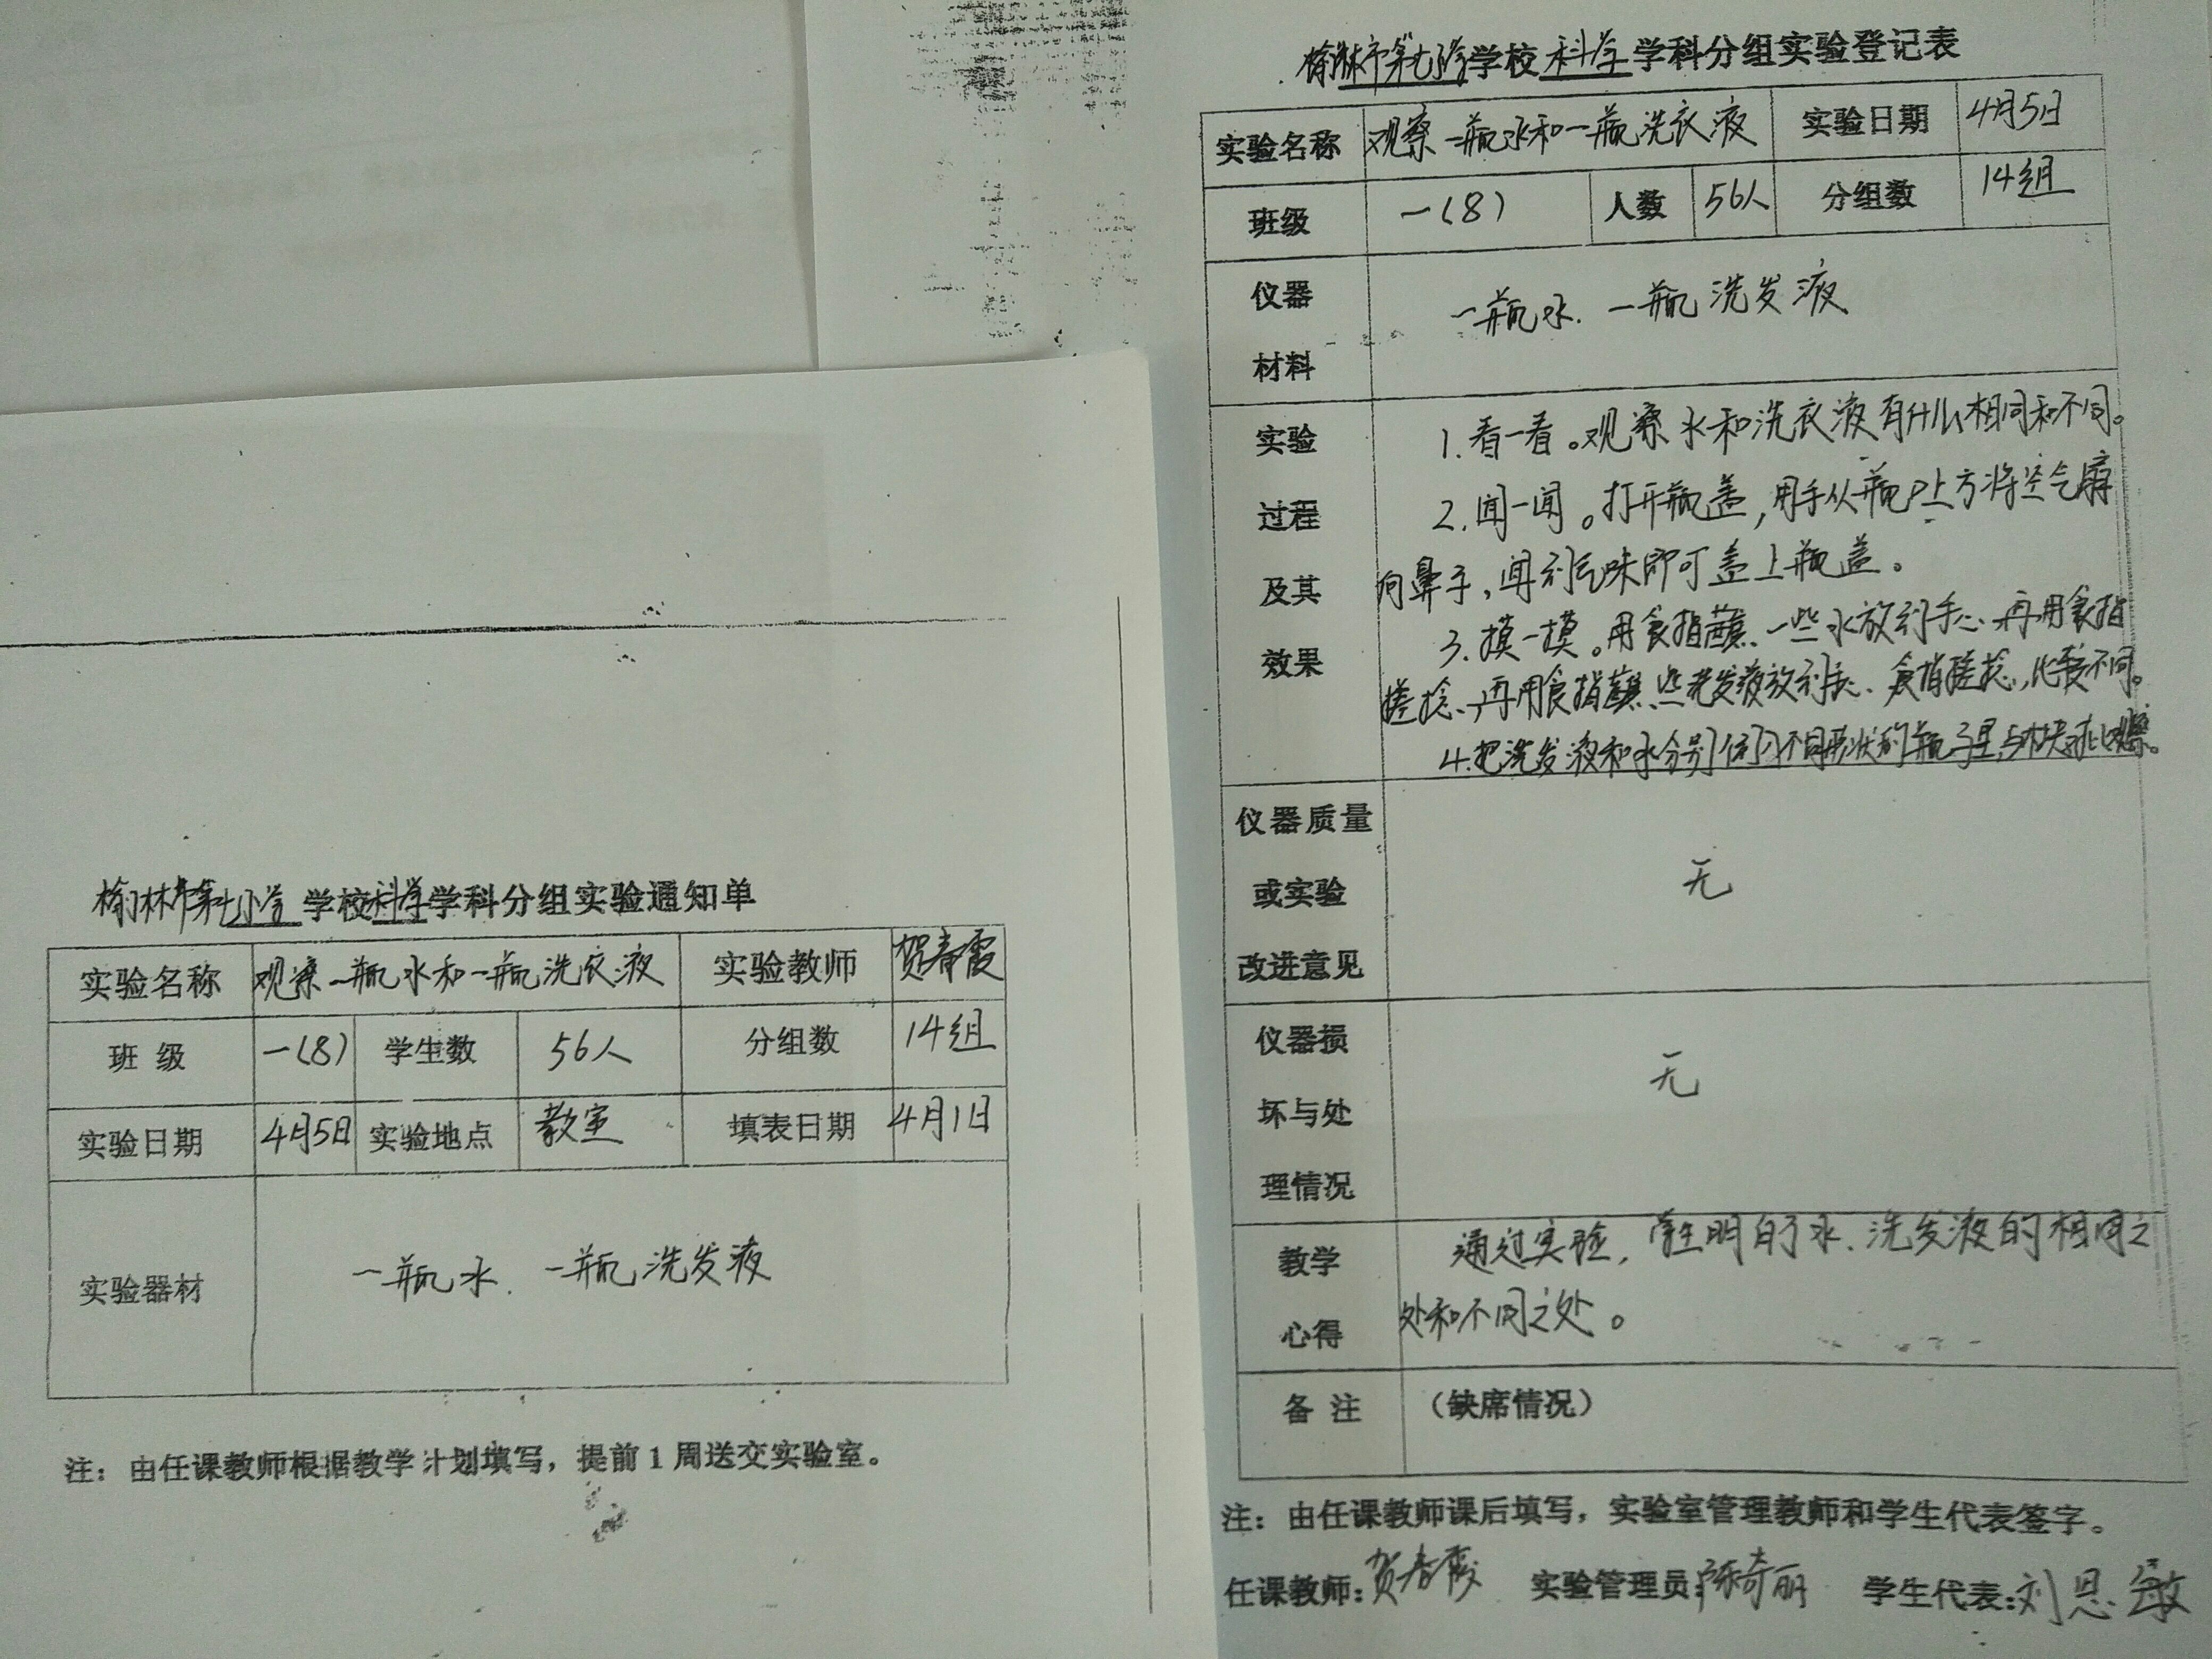 榆林市第七小学学校科学学科分组实验通知单
实验名称 观察一瓶水和一瓶洗衣液 实验教师 贺春霞
班 级 一(8) 学生数 56人 分组数 14组
实验日期 4月5日 实验地点 教室 填表日期 4月1日
实验器材 一瓶水. 一瓶洗发液
注：由任课教师根据教学计划填写，提前1周送交实验室。
榆林市第七小学学校科学学科分组实验登记表
实验名称 观察一瓶水和一瓶洗衣液 实验日期 4月5日
班级 一(8) 人数 56人 分组数 14组
仪器
材料
一瓶水. 一瓶洗发液
实验
过程
及其
效果
1.看一看。观察水和洗衣液有什么相同和不同。
2.闻一闻。打开瓶盖,用手从瓶口上方将空气扇
向鼻子,闻到气味即可盖上瓶盖。
3.摸一摸。用食指蘸一些水放到手心.再用食指
搓捻.再用食指蘸些洗发液放到手心.食指搓捻,比较不同。
4.把洗发液和水分别倒入不同形状的瓶子里,与木块对比观察。
仪器质量
或实验
改进意见
无
仪器损
坏与处
理情况
无
教学
心得
通过实验,学生明白了水.洗发液的相同之
处和不同之处。
备 注 （缺席情况）
注：由任课教师课后填写，实验室管理教师和学生代表签字。
任课教师:贺春霞 实验管理员:陈奇丽 学生代表:刘思敏